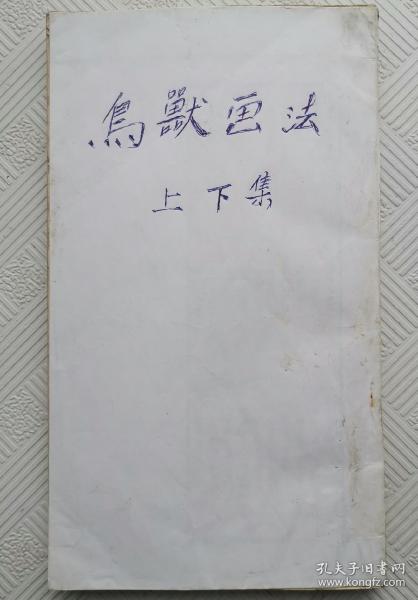 鳥獸画法
上下集
孔夫子旧书网
www.kongfz.com